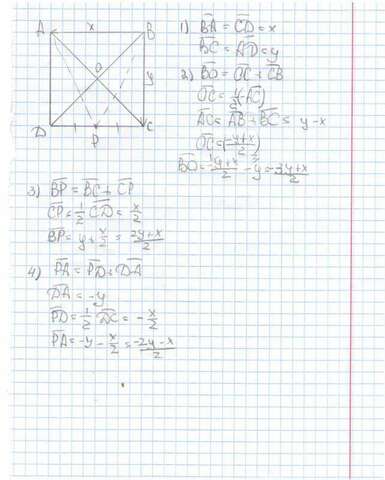 A x B
O y
D P C
1) BA = CD = x
BC = AD = y
2) BO = OC + CB
AC = AB + BC = y - x
3) BP = BC + CP
CP = 1/2 CD = x/2
BP = y + x/2 = 2y+x/2
4) PA = PD + DA
DA = -y
PD = 1/2 DC = - x/2
PA = -y - x/2 = -2y-x/2